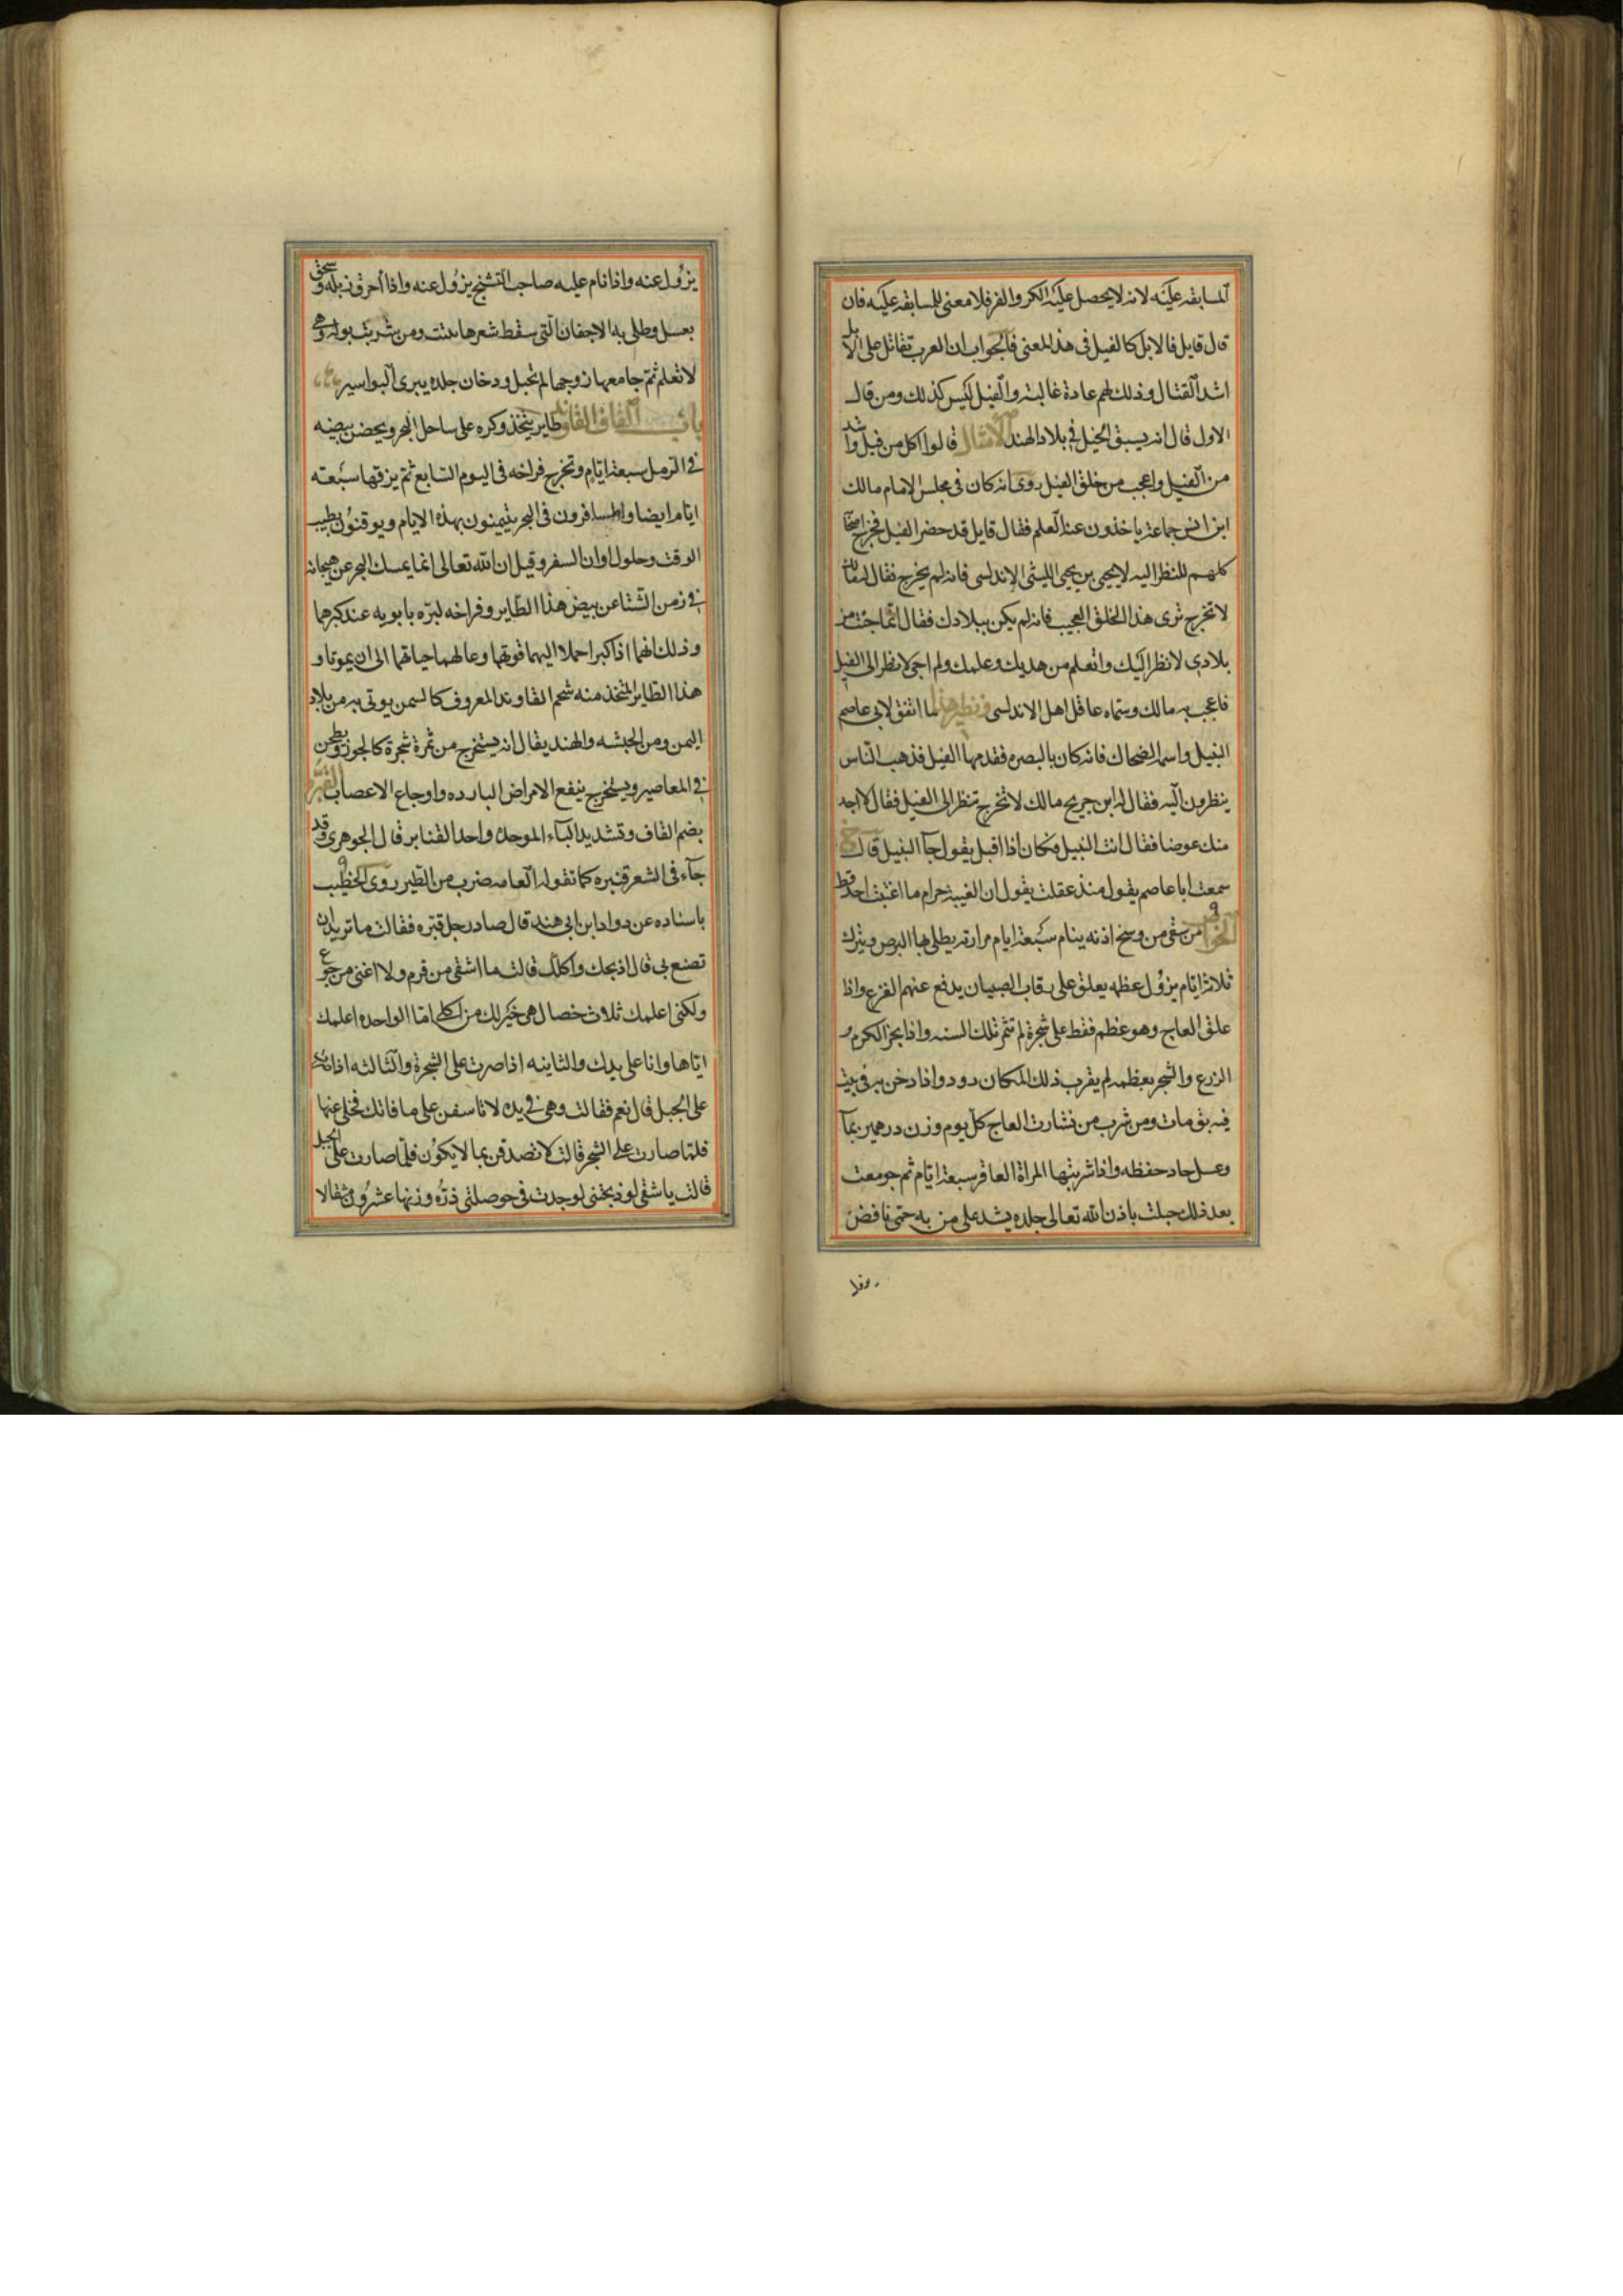 المسابقه عليه لانه لا يحصل عليه الكر والفر فلا معنى للمسابقه عليه فان
قال قايل فالابل كالفيل فى هذا المعنى فالجواب ان العرب تقاتل على الابل
اشد القتال وذلك لهم عادة غالبة والفيل ليس كذلك ومن قال
الاول قال انه يسبق الخيل فى بلاد الهند الامثال قالوا اكل من فيل واشد
من الفيل واعجب من خلق الفيل روى انه كان فى مجلس الامام مالك
ابن انس جماعة ياخذون عنه العلم فقال قايل قد حضر الفيل فخرج اصحابه
كلهم للنظر اليه لا يحيى بن يحيى الليثى الاندلسى فانه لم يخرج فقال له مالك
لا تخرج ترى هذا الخلق العجيب فانه لم يكن ببلادك فقال انما جئت من
بلادى لانظر اليك واتعلم من هديك وعلمك ولم اجى لانظر الى الفيل
فاعجب به مالك وسماه عاقل اهل الاندلسى ونظير هذا ما اتفق لابى عاصم
النبيل واسمه الضحاك فانه كان بالبصره فقدمها الفيل فذهب الناس
ينظرون اليه فقال له ابن جريح مالك لا تخرج تنظر الى الفيل فقال لا اجد
منك عوضا فقال انت النبيل فكان اذا اقبل يقول جآ النبيل قال خ
سمعت ابا عاصم يقول منذ عقلت يقول ان الغيبة حرام ما اغتبت احدا قط
الخواص من سقى من وسخ اذنه ينام سبعة ايام مرارته يطلى بها البرص ويترك
ثلاثة ايام يزول عظمه يعلق على رقاب الصبيان يدفع عنهم الفزع واذا
علق العاج وهو عظم فقط على شجرة لم تثمر تلك السنه واذا بخر الكرم و
الزرع والشجر بعظمه لم يقرب ذلك المكان دود واذا دخن به فى بيت
فيه بق مات ومن شرب من نشارت العاج كل يوم وزن درهمين بمآ
وعسل جاد حفظه واذا شربتها المراة العاقر سبعة ايام ثم جومعت
بعد ذلك حبلت باذن الله تعالى جلده يشد على من به حتى نافض
يزول عنه واذا نام عليه صاحب التشنج يزول عنه واذا احرق زبله وسحق
بعسل وطلى به الاجفان التى سقط شعرها نبتت ومن شربت بوله وهى
لا تعلم ثم جامعها زوجها لم تحبل ودخان جلده يبرى البواسير
باب القاف القاوند طاير يتخذ وكره على ساحل البحر ويحضن بيضه
فى الرمل سبعة ايام وتخرج فراخه فى اليوم السابع ثم يزقها سبعته
ايام ايضا والمسافرون فى البحر يتيمنون بهذه الايام ويوقنون بطيب
الوقت وحلول اوان السفر وقيل ان الله تعالى انما يمسك البحر عن هيجانه
فى زمن الشتا عن بيض هذا الطاير وفراخه لبره بابويه عند كبرهما
وذلك انهما اذا كبرا حملا اليهما قوتهما وعالهما حياتهما الى ان يموتا و
هذا الطاير المتخذ منه شحم القاوند المعروف كالسمن يوتى به من بلاد
اليمن ومن الحبشه والهند يقال انه يستخرج من ثمرة شجرة كالجوز ويطحن
فى المعاصير ويستخرج ينفع الامراض البارده واوجاع الاعصاب القبرة
بضم القاف وتشديد الباء الموحدة واحد القنابر قال الجوهرى وقد
جآء فى الشعر قنبره كما تقوله العامه ضرب من الطير روى الخطيب
باسناده عن دواد ابن ابى هند قال صاد رجل قبره فقالت ما تريد ان
تصنع بى قال اذبحك واكلك قالت ما اشفى من قرم ولا اغنى من جوع
ولكنى اعلمك ثلاث خصال هى خير لك من اكلى اما الواحده اعلمك
اياها وانا على يدك والثانيه اذا صرت على الشجرة والثالثه اذا صرت
على الجبل قال نعم فقالت وهى فى يده لا تاسفن على ما فاتك فخلى عنها
فلما صارت على الشجر قالت لا تصدقن بما لا يكون فلما صارت على الجبل
قالت يا شقى لو ذبحتنى لوجدت فى حوصلتى درّه وزنها عشرون مثقالا